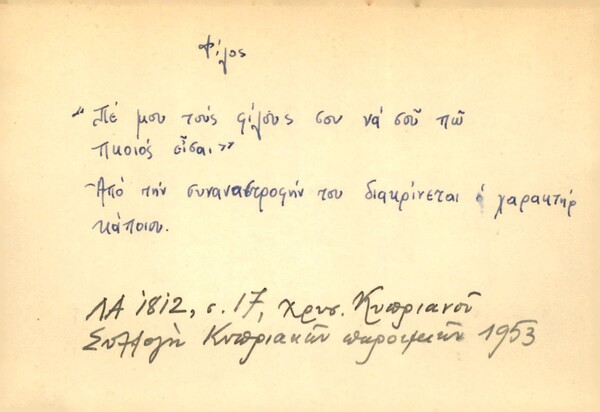 Φίλος
"Πέ μου τούς φίλους σου νά σοῦ πῶ
πκοιός εἶσαι"
Ἀπό τήν συναναστροφήν του διακρίνεται ὁ χαρακτήρ
κάποιου.
ΛΑ 1812, σ. 17, Χρυσ. Κυπριανοῦ
Συλλογὴ Κυπριακῶν παροιμιῶν 1953